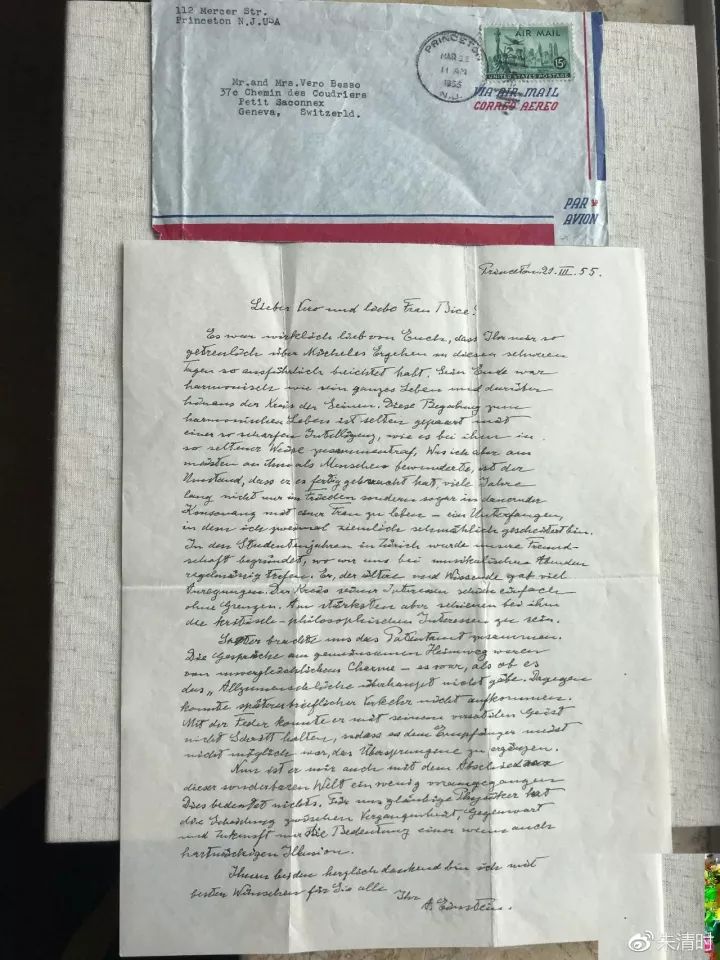 112 Mercer Str.
Princeton N.J.USA
PRINCETON
MAR
11 AM
1955
N.J.
AIR MAIL
15¢
UNITED STATES POSTAGE
VIA AIR MAIL
CORREO AEREO
Mr.and Mrs.Vero Besso
37c Chemin des Coudriers
Petit Saconnex
Geneva, Switzerld.
PAR
AVION
Princeton 21. III. 55.
Lieber Vero und liebe Frau Bice!
Es war wirklich lieb von Euch, dass Ihr mir so
getreulich über Micheles Ergehen in diesen schweren
Tagen so ausführlich berichtet habt. Sein Ende war
harmonisch wie sein ganzes Leben und darüber
hinaus der Kreis der Seinen. Diese Begabung zum
harmonischen Leben ist selten gepaart mit
einer so scharfen Intelligenz, wie es bei ihm in
so seltener Weise zusammentraf. Was ich aber am
meisten an ihm als Menschen bewunderte, ist der
Umstand, dass er es fertig gebracht hat, viele Jahre
lang nicht nur in Frieden sondern sogar in dauernder
Konsonanz mit einer Frau zu leben – ein Unterfangen,
in dem ich zweimal ziemlich schmählich gescheitert bin.
In den Studentenjahren in Zürich wurde unsre Freund-
schaft begründet, wo wir uns bei musikalischen Abenden
regelmässig trafen. Er, der ältere und Wissende gab viel
Anregungen. Der Kreis seiner Interessen schien einfach
ohne Grenzen. Am stärksten aber schienen bei ihm
die kritisch-philosophischen Interessen zu sein.
Später brachte uns das Patentamt zusammen.
Die Gespräche am gemeinsamen Heimweg waren
von unvergleichlichem Charme – es war, als ob es
das „Allzumenschliche überhaupt nicht gäbe. Dagegen
konnte später brieflicher Verkehr nicht aufkommen.
Mit der Feder konnte er mit seinem Geist
nicht Schritt halten, sodass es dem Empfänger meist
nicht möglich war, das Übersprungene zu ergänzen.
Nun ist er mir auch mit dem Abschied von
dieser sonderbaren Welt ein wenig vorausgegangen
Dies bedeutet nichts. Für uns gläubige Physiker hat
die Scheidung zwischen Vergangenheit, Gegenwart
und Zukunft nur die Bedeutung einer wenn auch
hartnäckigen Illusion.
Ihnen beiden herzlich dankend bin ich mit
besten Wünschen für Sie alle Ihr
A. Einstein.
朱清时